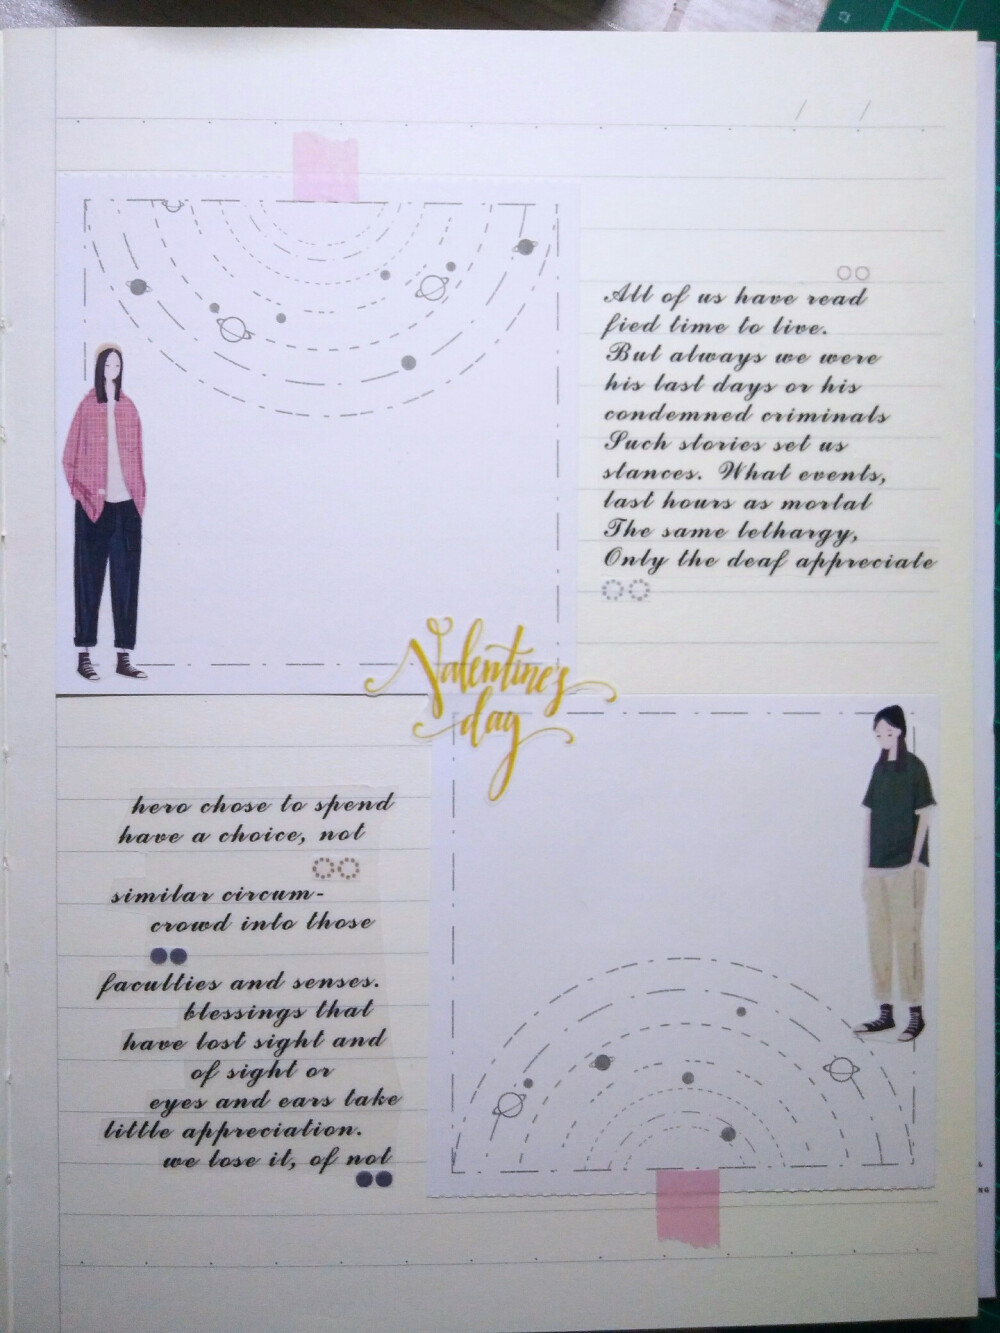 All of us have read
fied time to live.
But always we were
his last days or his
condemned criminals
Such stories set us
stances. What events,
last hours as mortal
The same lethargy,
Only the deaf appreciate
Valentine's
day
hero chose to spend
have a choice, not
similar circum-
crowd into those
faculties and senses.
blessings that
have lost sight and
of sight or
eyes and ears take
little appreciation.
we lose it, of not